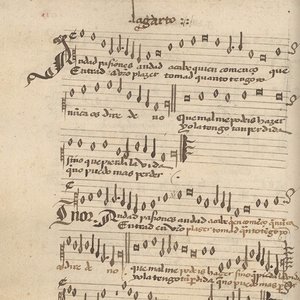 Lagarto
Andad pasiones andad acabe quien començo que
Entrad a vos plazer tomad quanto tengo yo
nũca os dire de no que mal me podeis hazer
yo la tengo tan perdida
sino que pierda la vida
que puedo mas perder
Tenor Andad pasiones andad acabe quien começo que
Entrad
plazer tomad qto tego yo
os dire de no que mal me podeis hazer sino que
yo la tengo perdida que puedo mas